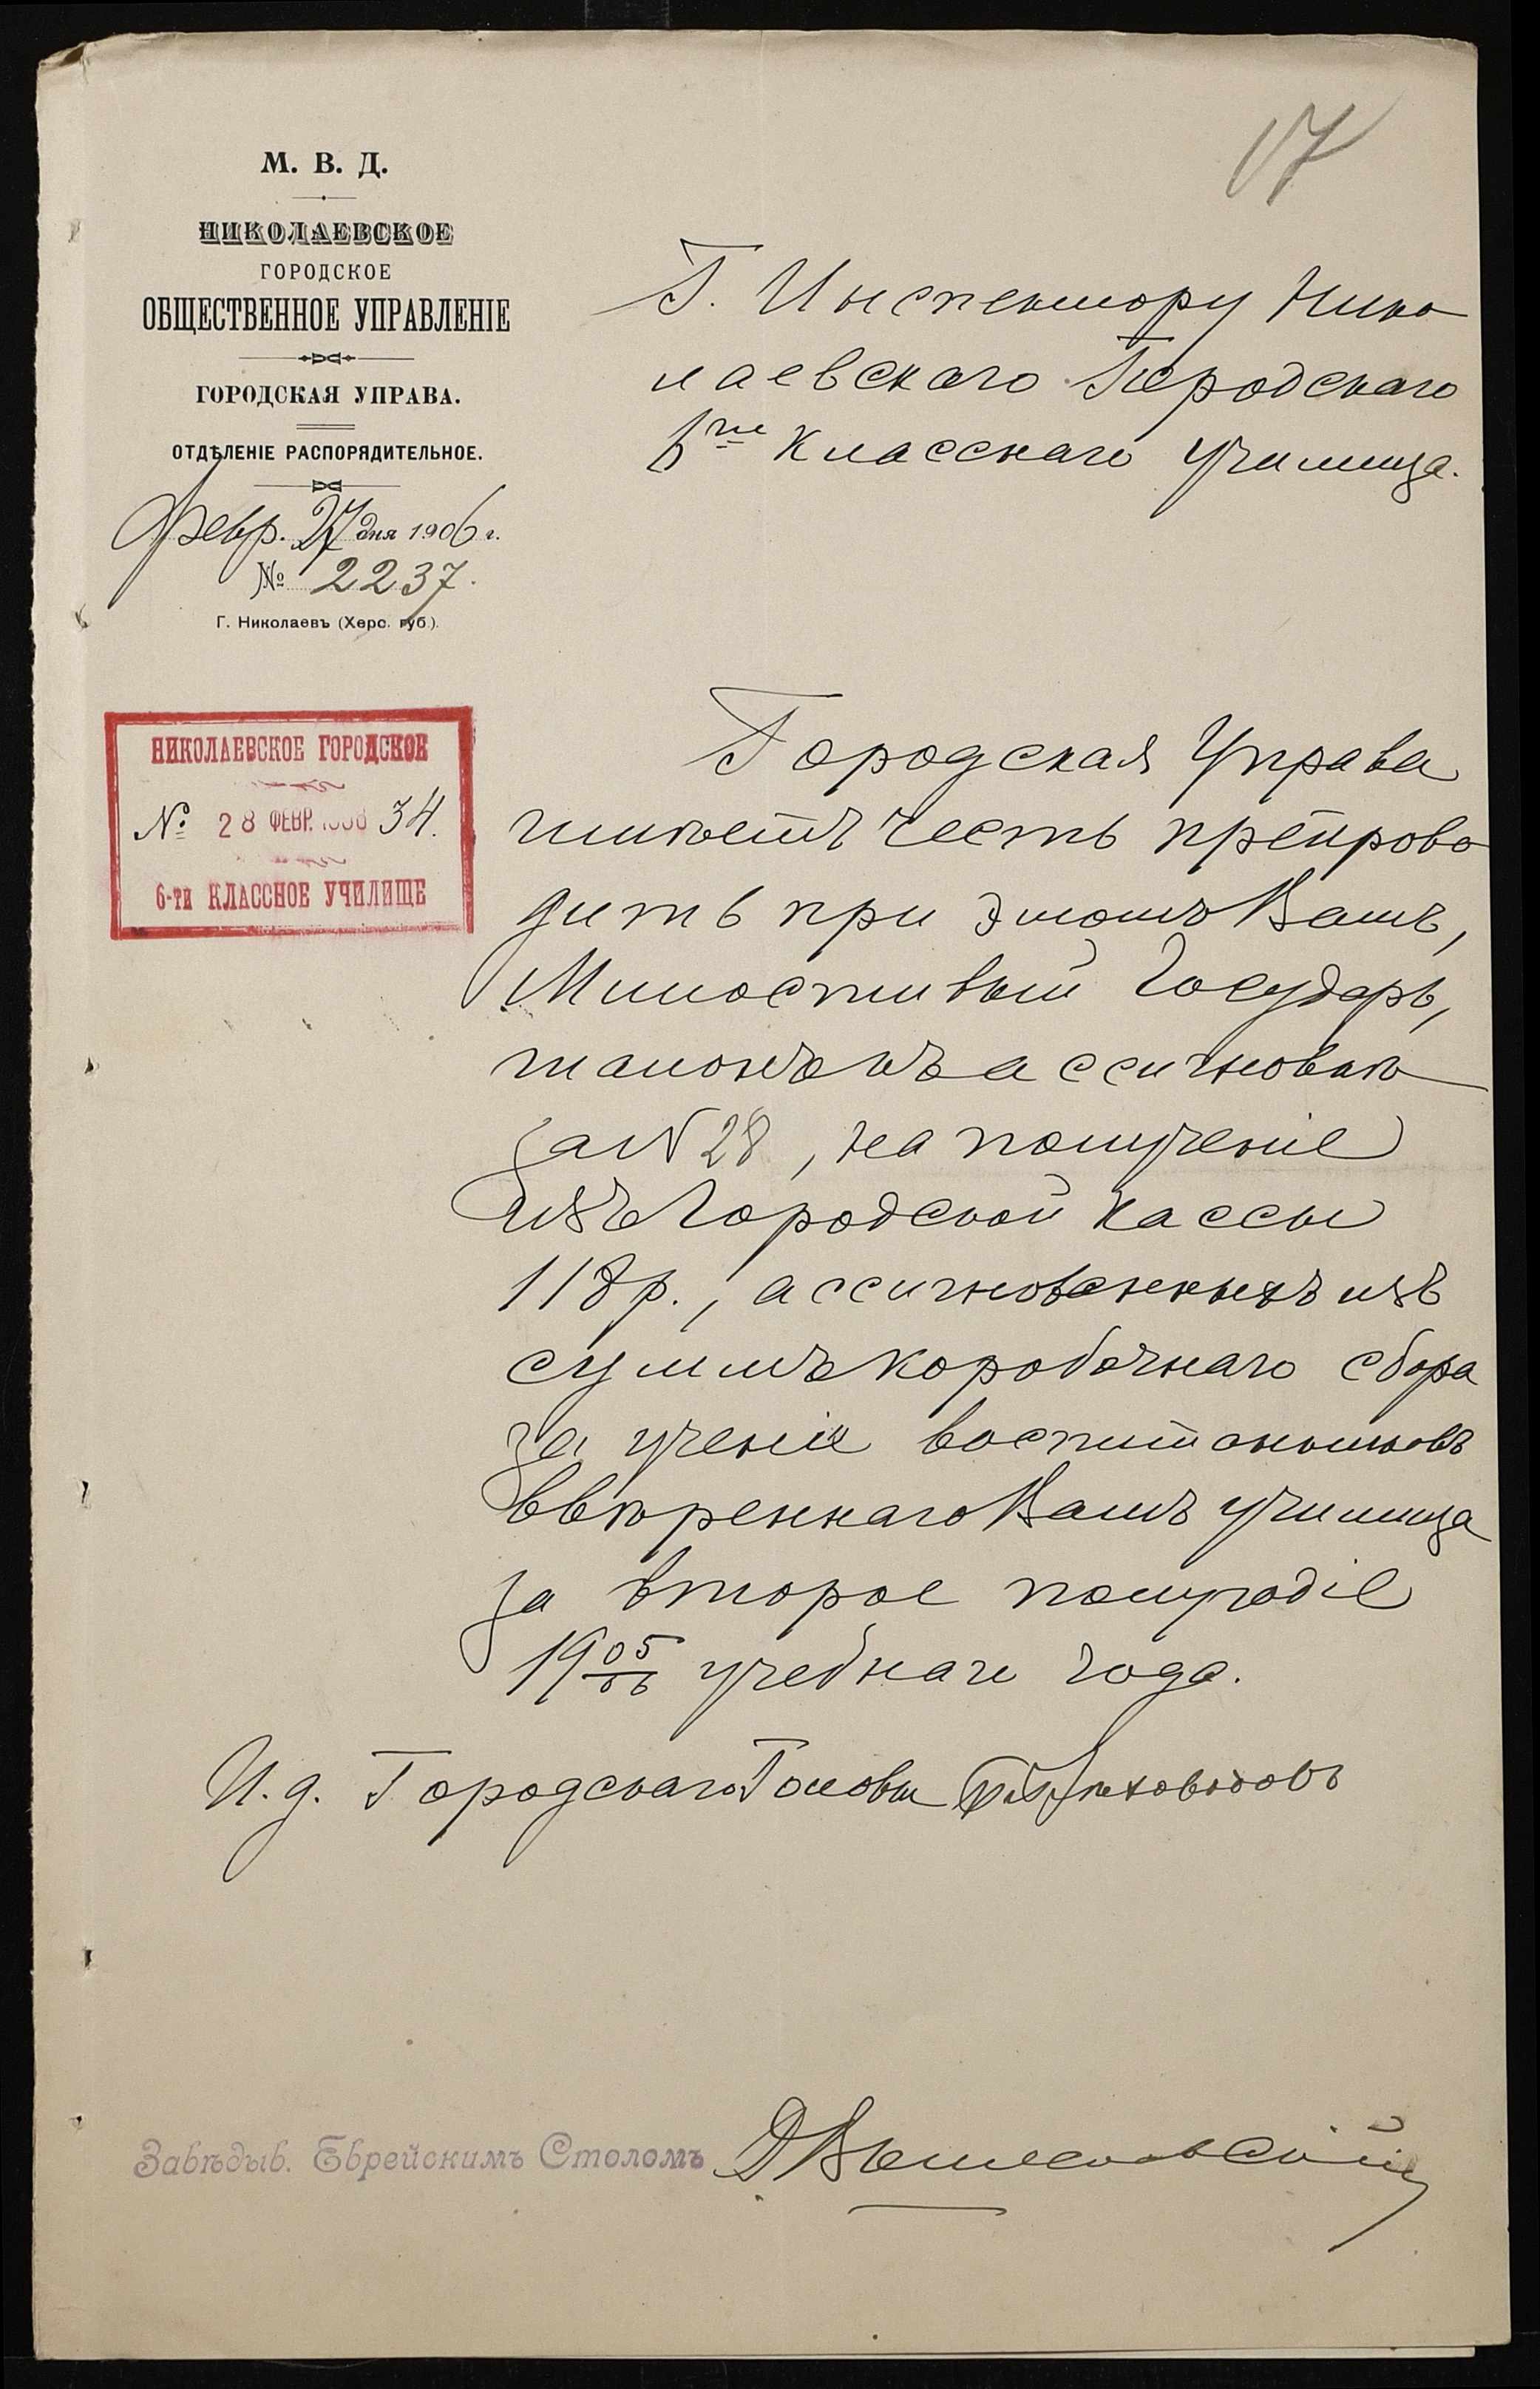 17
М. В. Д.
НИКОЛАЕВСКОЕ
ГОРОДСКОЕ
ОБЩЕСТВЕННОЕ УПРАВЛЕНІЕ
ГОРОДСКАЯ УПРАВА.
ОТДѢЛЕНІЕ РАСПОРЯДИТЕЛЬНОЕ.
Февр. 27 дня 1906 г.
№ 2237.
Г. Николаевъ (Херс. губ.).
Г. Инспектору Нико
лаевскаго Городскаго
6ти Класснаго училища.
НИКОЛАЕВСКОЕ ГОРОДСКОЕ
№ 28 ФЕВР. 1906 34.
6-ти КЛАССНОЕ УЧИЛИЩЕ
Городская Управа
имѣетъ честь препрово
дить при этомъ Вамъ,
Милостивый Государь,
талонъ къ ассигновкѣ
за № 28, на полученіе
изъ Городской кассы
118 р., ассигнованныхъ изъ
суммъ коробочнаго сбора
за ученіе воспитанниковъ
ввѣреннаго Вамъ училища
за второе полугодіе
1905/06 учебнаго года.
И. д. Городскаго Головы
Завѣдыв. Еврейскимъ Столомъ